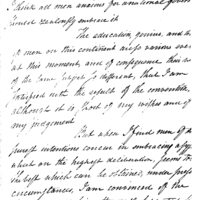 I think all men anxious for a national govern
should zealously embrace it
The education, genius, and
of men on this continent are so various
at this moment, and of consequence their
of the same subject so different, that I am
satisfied with the result of the convention,
although it is short of my wishes and of
my judgement
But when I find men of
purest intentions concur in embracing a
which on the highest deliberation, seems to
the best which can be obtained, under present
circumstances, I am convinced of the